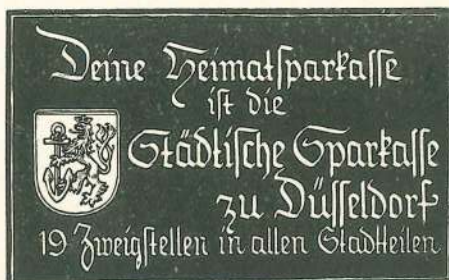 Deine Heimatsparkasse
ist die
Städtische Sparkasse
zu Düsseldorf
19 Zweigstellen in allen Stadtteilen